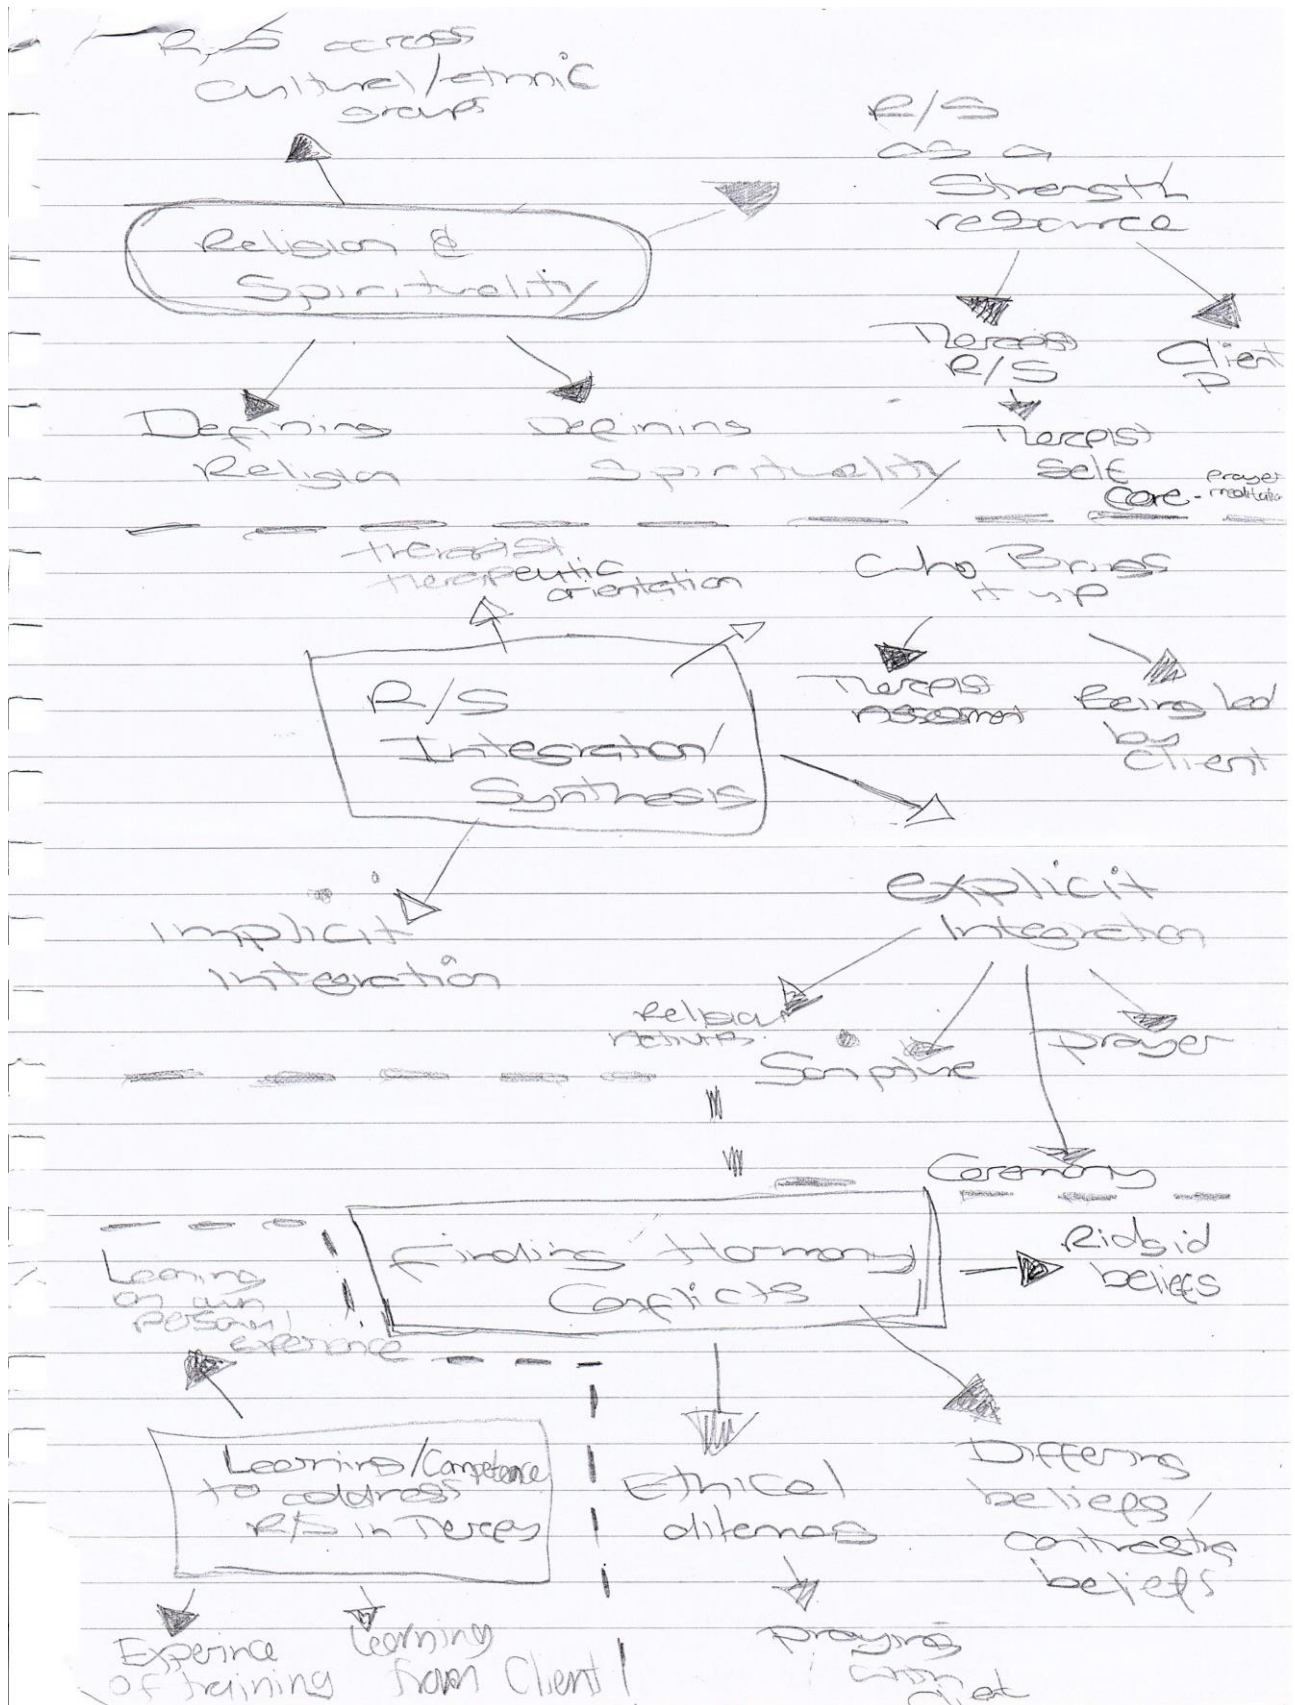 R/S across
cultural/ethnic
groups
R/S
as a
Strength
resource
Religion &
Spirituality
Therapist
R/S
Client
Defining
Religion
Defining
Spirituality
Therapist
Self
Care - prayer
meditation
therapist
therapeutic
orientation
Who Brings
it up
R/S
Integration/
Synthesis
Therapist
Assessment
Being led
by
Client
Implicit
integration
explicit
Integration
Religious
Activities
Scripture
prayer
Ceremony
finding Harmony
Conflicts
Ridgid
beliefs
Leaning
on own
personal
experience
Learning/Competence
to address
R/S in Therapy
Ethical
dilemas
Differing
beliefs/
contrasting
beliefs
Experince
of training
Learning
from Client
praying
with
client